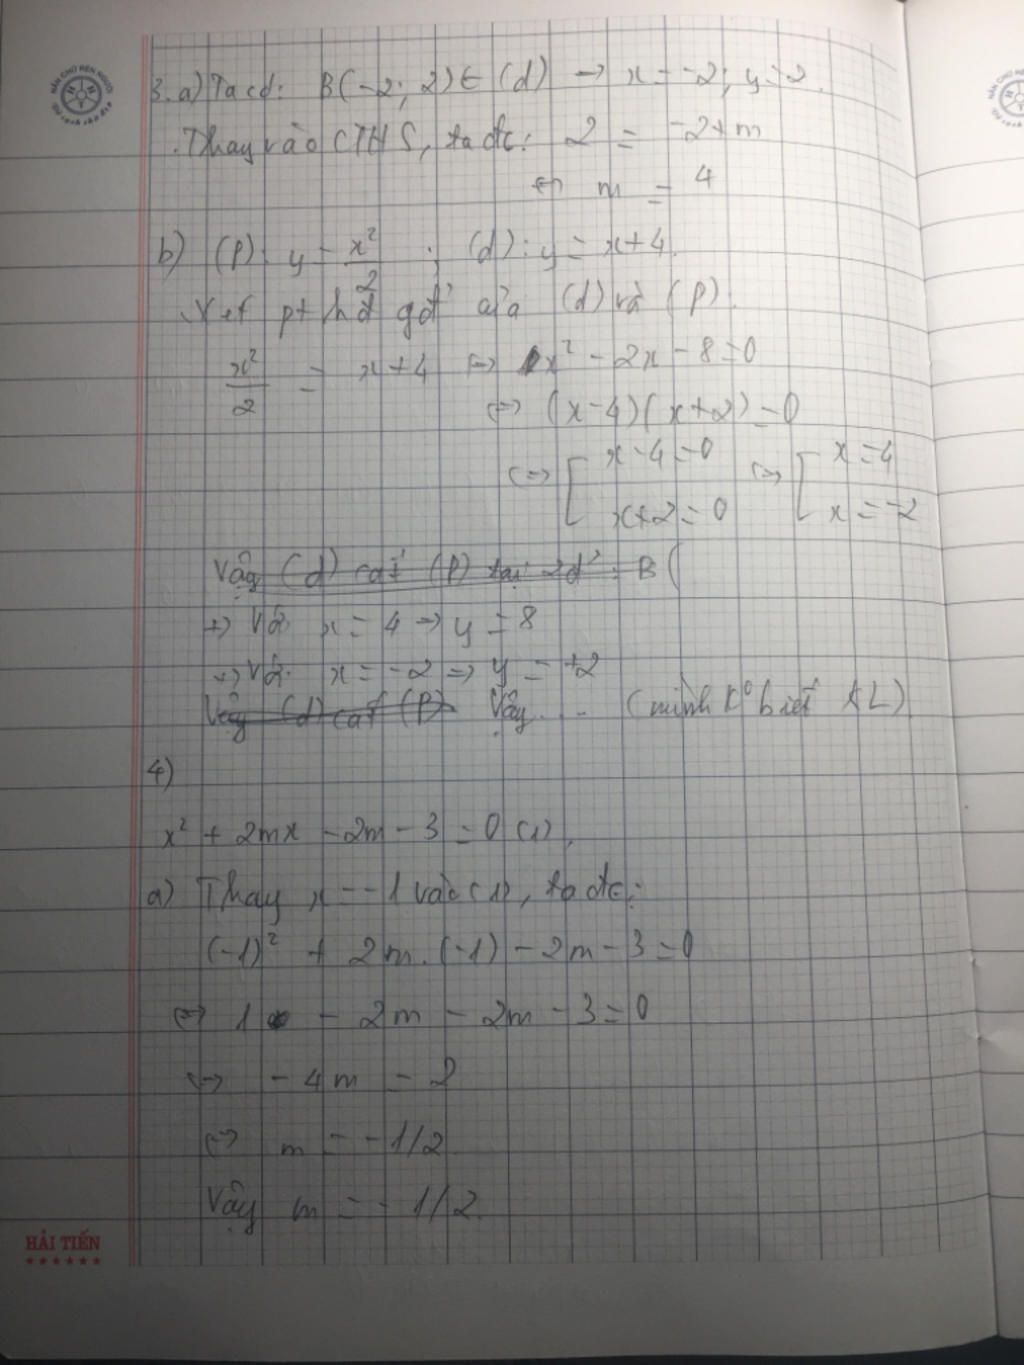 3. a) Ta có: B(-2; 2) ∈ (d) → x = -2; y = 2.
Thay vào CTHS, ta đc: 2 = -2 + m
⇔ m = 4
b) (P): y = x²/2 ; (d): y = x + 4.
Xét pt hđ gđ của (d) và (P).
x²/2 = x + 4 ⇔ x² - 2x - 8 = 0
⇔ (x - 4)(x + 2) = 0
⇔ [ x - 4 = 0 ⇔ [ x = 4
x + 2 = 0 x = -2
Vậy (d) cắt (P) tại 2đ': B (
+) Với x = 4 → y = 8
+) Với x = -2 => y = +2
Vậy (d) cắt (P) Vậy... (mình k° biết KL)
4)
x² + 2mx - 2m - 3 = 0 (1)
a) Thay x = -1 vào (1), ta đc:
(-1)² + 2m.(-1) - 2m - 3 = 0
⇔ 1 - 2m - 2m - 3 = 0
⇔ -4m = 2
⇔ m = -1/2
Vậy m = -1/2.
HẢI TIẾN